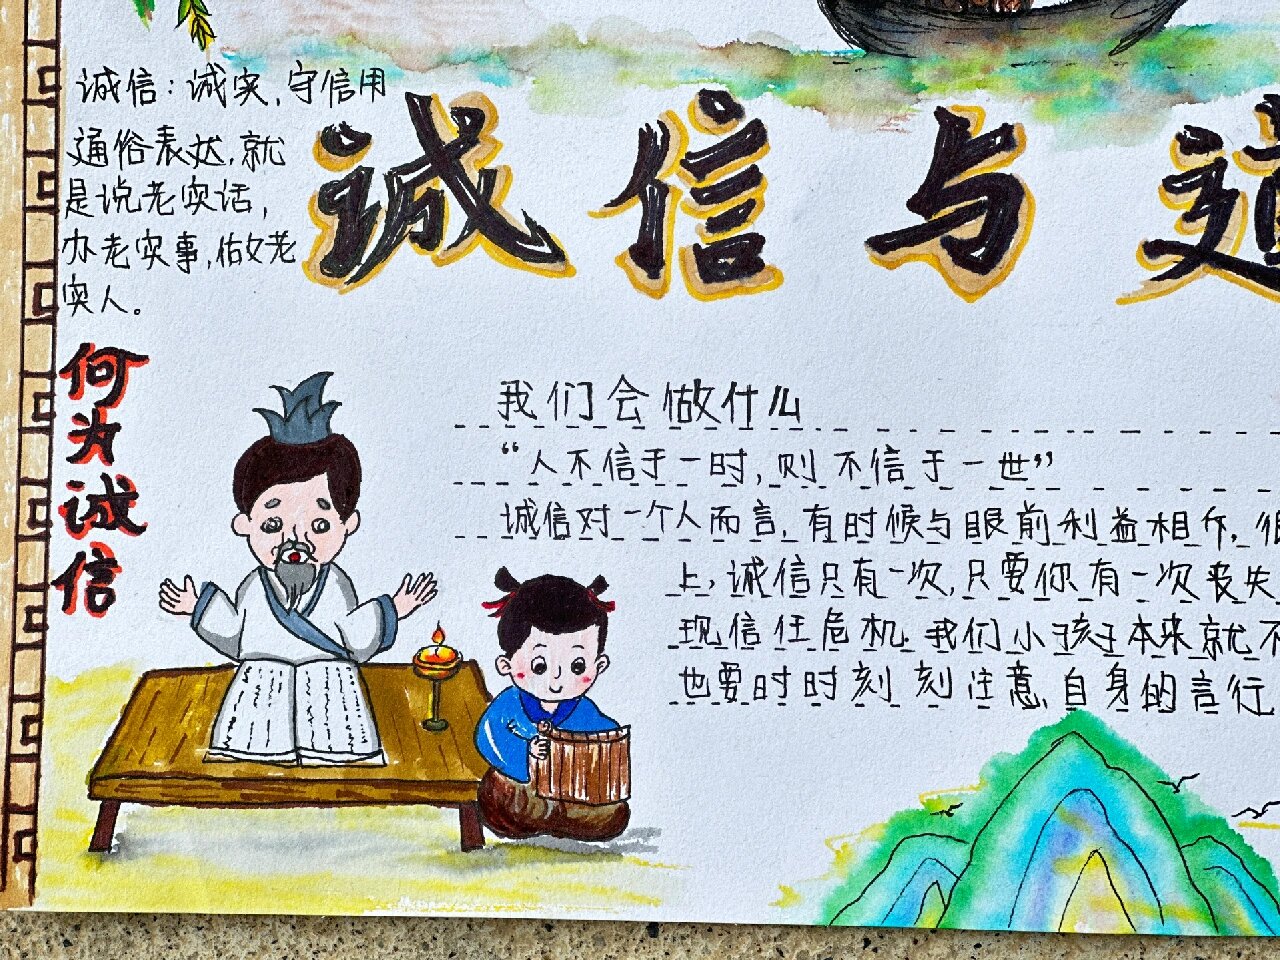 诚信：诚实，守信用
通俗表达，就
是说老实话，
办老实事，做老
实人。
诚信与道
何为诚信
我们会做什么
“人不信于一时，则不信于一世”
诚信对一个人而言，有时候与眼前利益相斥，很
上，诚信只有一次，只要你有一次丧失
现信任危机。我们小孩子本来就不
也要时时刻刻注意，自身的言行